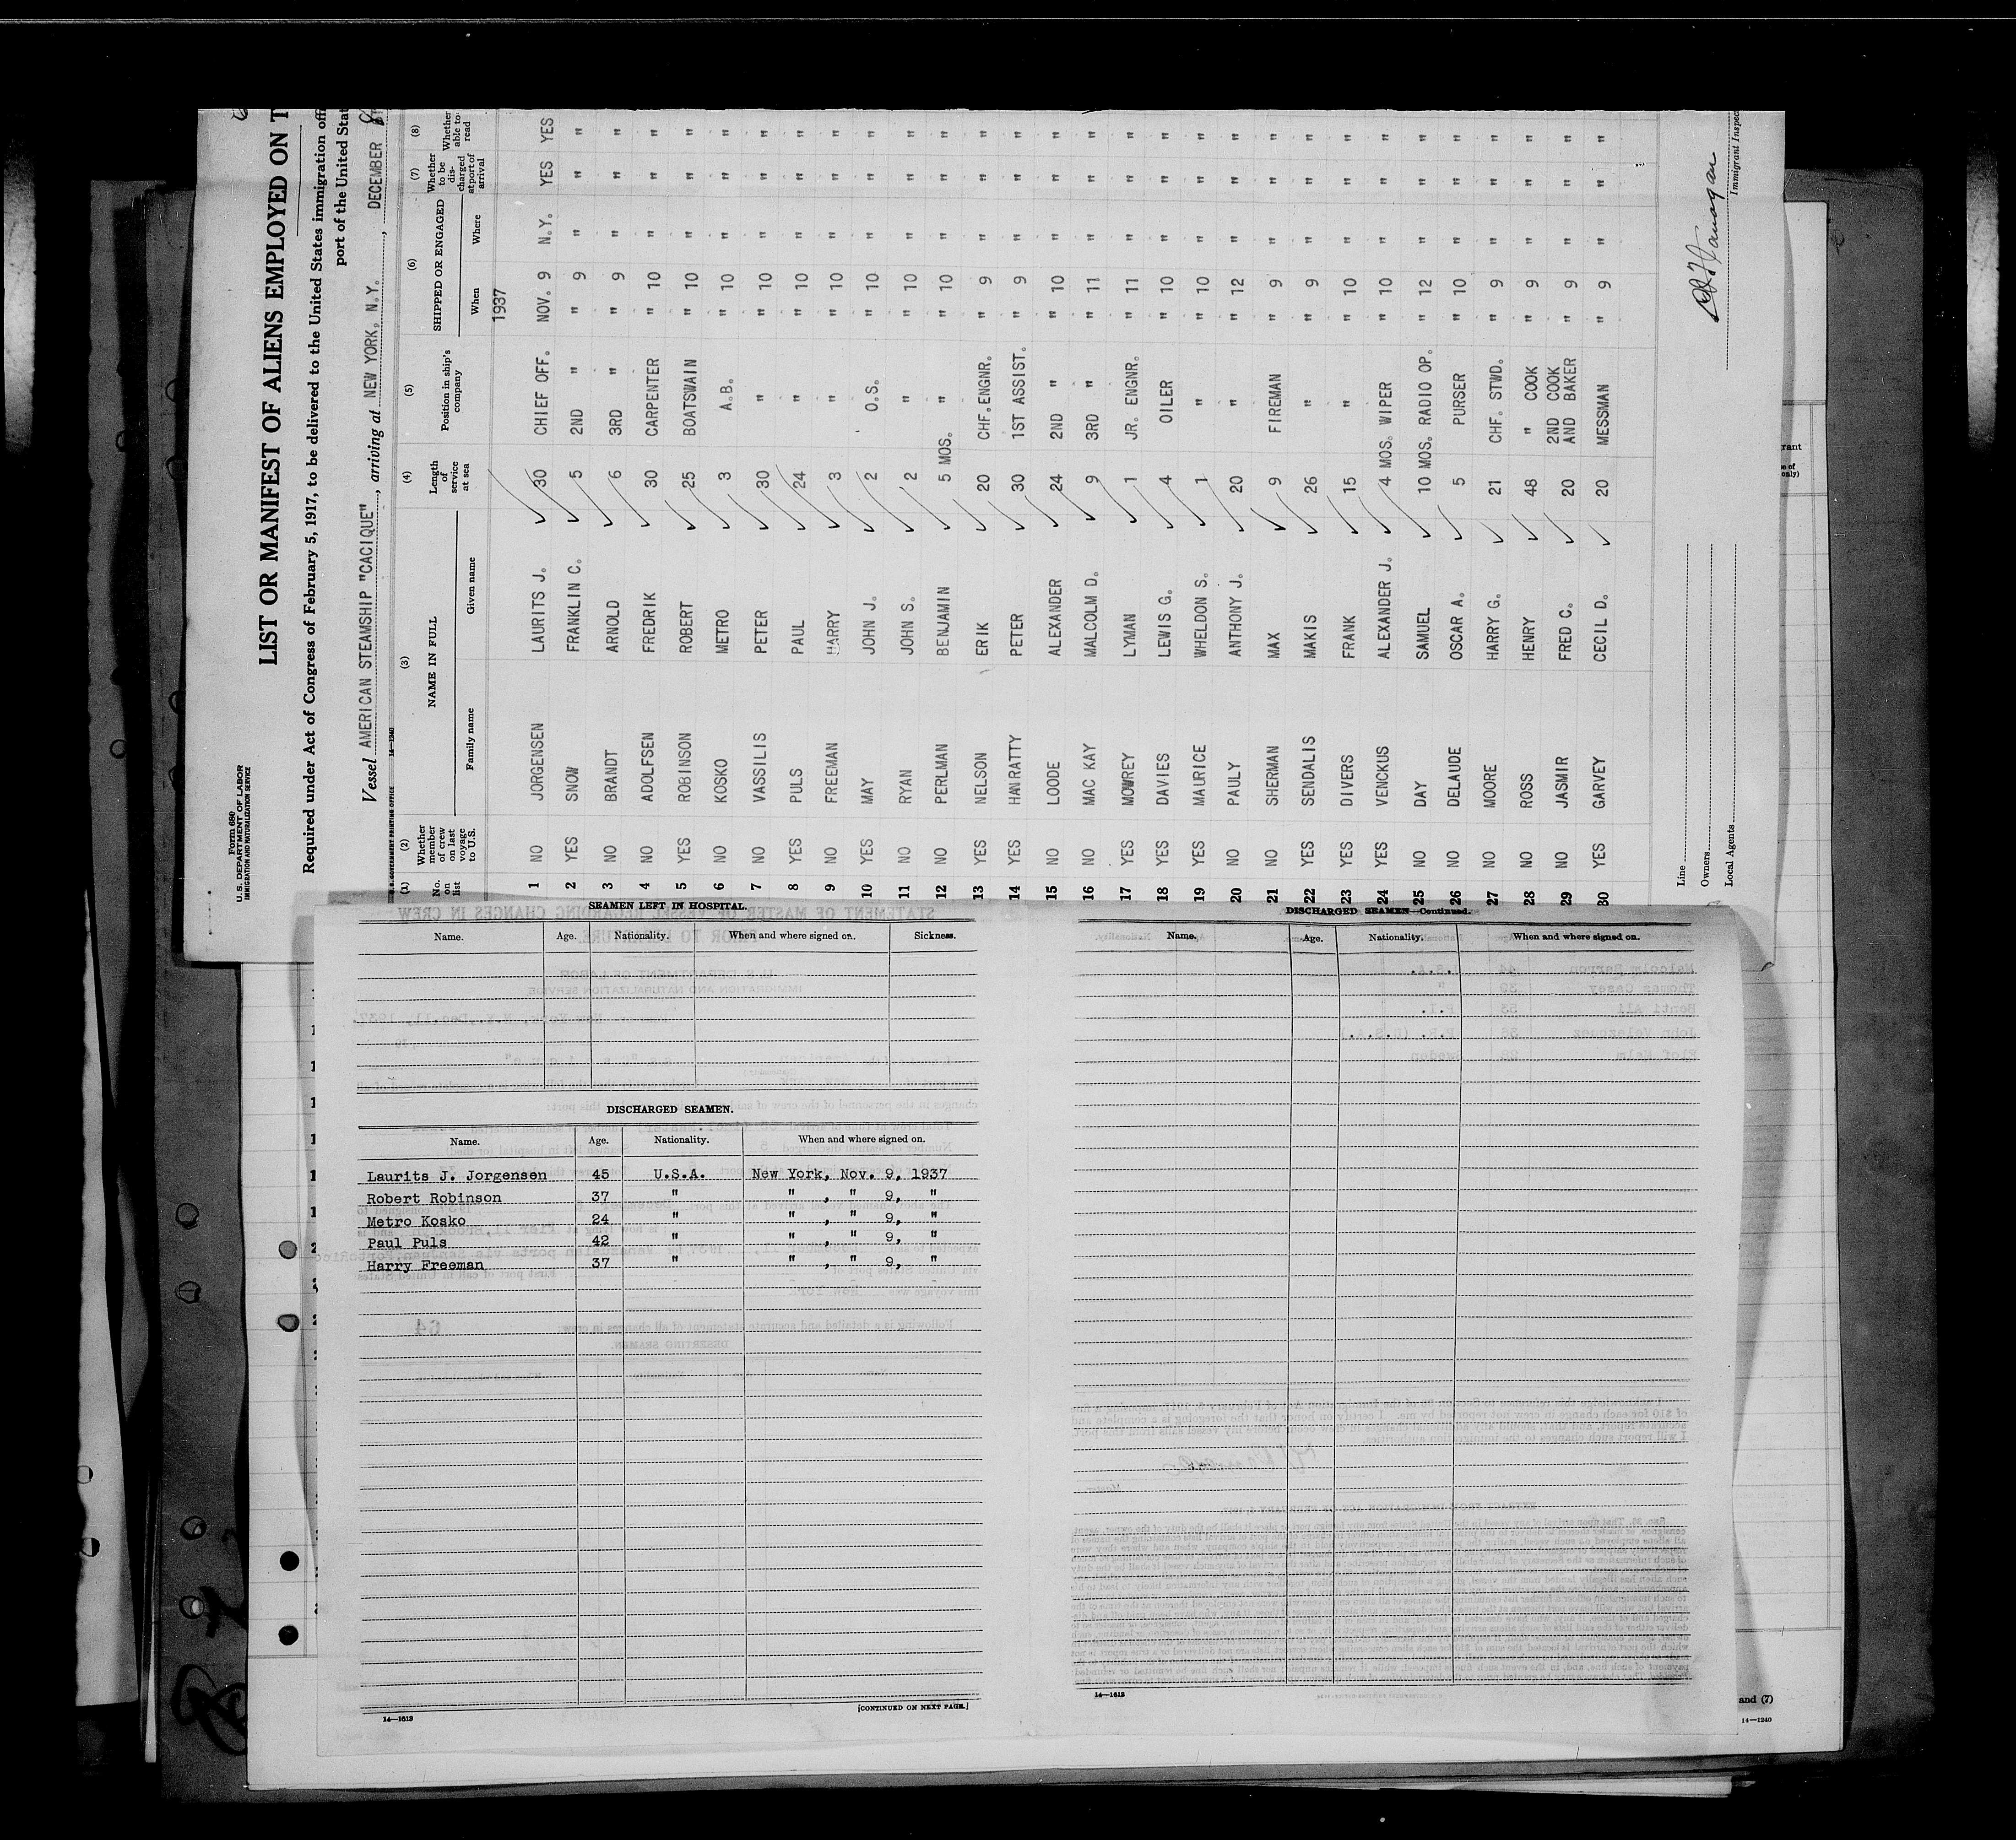 Form 680
U. S. DEPARTMENT OF LABOR
IMMIGRATION AND NATURALIZATION SERVICE
LIST OR MANIFEST OF ALIENS EMPLOYED ON T
Required under Act of Congress of February 5, 1917, to be delivered to the United States immigration off
port of the United Stat
Vessel AMERICAN STEAMSHIP "CACIQUE", arriving at NEW YORK, N.Y., DECEMBER
U.S. GOVERNMENT PRINTING OFFICE 14—1240
(1) (2) (3) (4) (5) (6) (7) (8)
No. on list Whether member of crew on last voyage to U.S. NAME IN FULL Family name Given name Length of service at sea Position in ship's company SHIPPED OR ENGAGED When Where Whether to be discharged at port of arrival Whether able to read
1937
1 NO JORGENSEN LAURITS J. 30 CHIEF OFF. NOV. 9 N.Y. YES YES
2 YES SNOW FRANKLIN C. 5 2ND " " 9 " " "
3 NO BRANDT ARNOLD 6 3RD " " 9 " " "
4 NO ADOLFSEN FREDRIK 30 CARPENTER " 10 " " "
5 YES ROBINSON ROBERT 25 BOATSWAIN " 10 " " "
6 NO KOSKO METRO 3 A.B. " 10 " " "
7 NO VASSILIS PETER 30 " " 10 " " "
8 YES PULS PAUL 24 " " 10 " " "
9 NO FREEMAN HARRY 3 " " 10 " " "
10 YES MAY JOHN J. 2 O.S. " 10 " " "
11 NO RYAN JOHN S. 2 " " 10 " " "
12 NO PERLMAN BENJAMIN 5 MOS. " " 10 " " "
13 YES NELSON ERIK 20 CHF. ENGNR. " 9 " " "
14 YES HANRATTY PETER 30 1ST ASSIST. " 9 " " "
15 NO LOODE ALEXANDER 24 2ND " " 10 " " "
16 NO MAC KAY MALCOLM D. 9 3RD " " 11 " " "
17 YES MOWREY LYMAN 1 JR. ENGNR. " 11 " " "
18 YES DAVIES LEWIS G. 4 OILER " 10 " " "
19 YES MAURICE WHELDON S. 1 " " 10 " " "
20 NO PAULY ANTHONY J. 20 " " 12 " " "
21 NO SHERMAN MAX 9 FIREMAN " 9 " " "
22 YES SENDALIS MAKIS 26 " " 9 " " "
23 YES DIVERS FRANK 15 " " 10 " " "
24 YES VENCKUS ALEXANDER J. 4 MOS. WIPER " 10 " " "
25 NO DAY SAMUEL 10 MOS. RADIO OP. " 12 " " "
26 NO DELAUDE OSCAR A. 5 PURSER " 10 " " "
27 NO MOORE HARRY G. 21 CHF. STWD. " 9 " " "
28 NO ROSS HENRY 48 " COOK " 9 " " "
29 NO JASMIR FRED C. 20 2ND COOK AND BAKER " 9 " " "
30 YES GARVEY CECIL D. 20 MESSMAN " 9 " " "
Line
Owners
Local Agents
Immigrant Inspec
SEAMEN LEFT IN HOSPITAL.
Name. Age. Nationality. When and where signed on. Sickness.
DISCHARGED SEAMEN.
Name. Age. Nationality. When and where signed on.
Laurits J. Jorgensen 45 U.S.A. New York, Nov. 9, 1937
Robert Robinson 37 " " , " 9, "
Metro Kosko 24 " " , " 9, "
Paul Puls 42 " " , " 9, "
Harry Freeman 37 " " , " 9, "
[CONTINUED ON NEXT PAGE.]
14—1613
DISCHARGED SEAMEN—Continued.
Name. Age. Nationality. When and where signed on.
14—1613
and (7)
14—1240